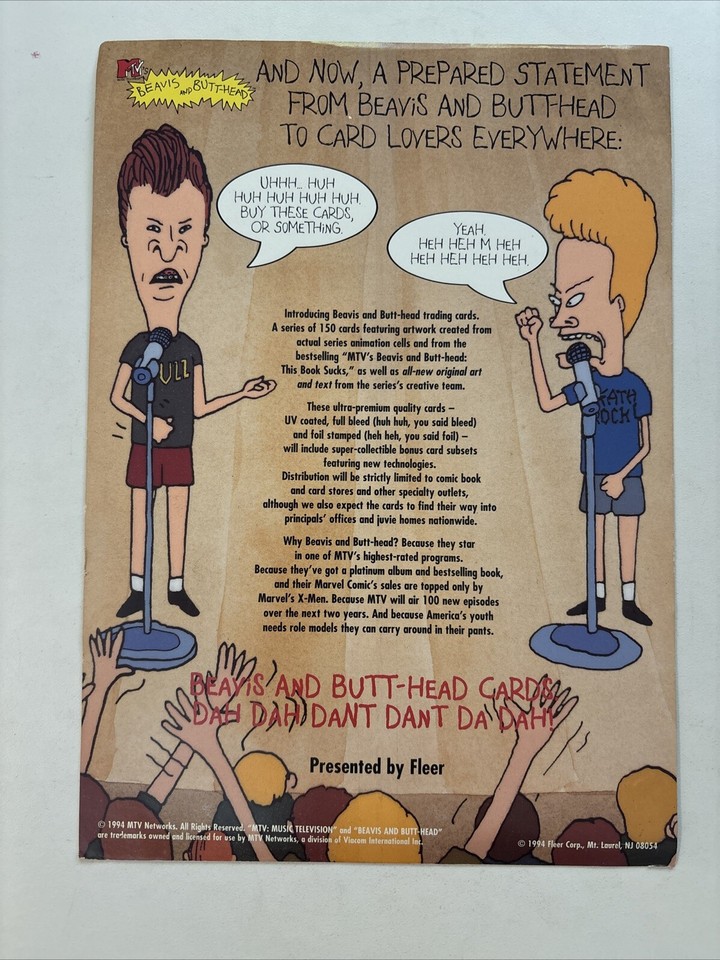 MTV's
BEAVIS AND BUTT-HEAD
AND NOW, A PREPARED STATEMENT
FROM BEAVIS AND BUTT-HEAD
TO CARD LOVERS EVERYWHERE:
UHHH... HUH
HUH HUH HUH HUH.
BUY THESE CARDS,
OR SOMETHING.
YEAH.
HEH HEH M HEH
HEH HEH HEH HEH.
Introducing Beavis and Butt-head trading cards.
A series of 150 cards featuring artwork created from
actual series animation cells and from the
bestselling "MTV's Beavis and Butt-head:
This Book Sucks," as well as all-new original art
and text from the series's creative team.
These ultra-premium quality cards –
UV coated, full bleed (huh huh, you said bleed)
and foil stamped (heh heh, you said foil) –
will include super-collectible bonus card subsets
featuring new technologies.
Distribution will be strictly limited to comic book
and card stores and other specialty outlets,
although we also expect the cards to find their way into
principals' offices and juvie homes nationwide.
Why Beavis and Butt-head? Because they star
in one of MTV's highest-rated programs.
Because they've got a platinum album and bestselling book,
and their Marvel Comic's sales are topped only by
Marvel's X-Men. Because MTV will air 100 new episodes
over the next two years. And because America's youth
needs role models they can carry around in their pants.
ULL
EATH
ROCK
BEAVIS AND BUTT-HEAD CARDS.
DAH DAH DANT DANT DA DAH!
Presented by Fleer
© 1994 MTV Networks. All Rights Reserved. "MTV: MUSIC TELEVISION" and "BEAVIS AND BUTT-HEAD"
are trademarks owned and licensed for use by MTV Networks, a division of Viacom International Inc.
© 1994 Fleer Corp., Mt. Laurel, NJ 08054